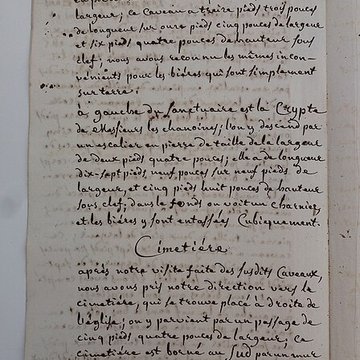 largeur; ce caveau a treize pieds trois pouces
de longueur sur onze pieds cinq pouces de largeur
et six pieds quatre pouces de hauteur sous
clef; nous avons reconnu les mêmes incon-
vénients pour les bières qui sont simplement
sur terre.
à gauche du sanctuaire est la Crypte
de Messieurs les chanoines; l'on y descend par
un escalier en pierre de taille de la largeur
de deux pieds quatre pouces; elle a de longueur
dix-sept pieds neuf pouces sur neuf pieds de
largeur, et cinq pieds huit pouces de hauteur
sous clef, dans le fonds on voit un charnier,
et les bières y sont entassées Cubiquement.
Cimetière
après notre visite faite des susdits Caveaux
nous avons pris notre direction vers le
cimetière, qui se trouve placé à droite de
l'église; on y parvient par un passage de
cinq pieds quatre pouces de largeur; ce
cimetière est borné au sud par un mur